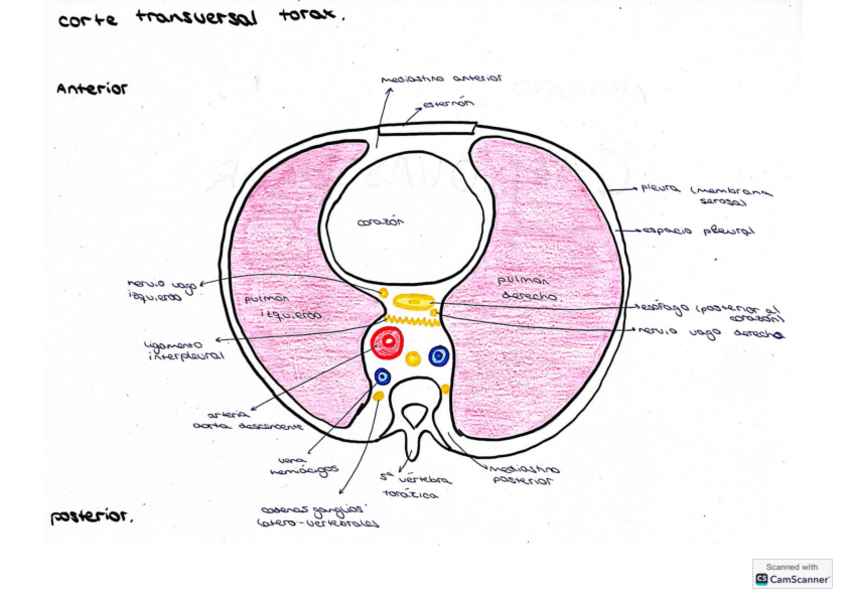 corte transversal torax.
Anterior
mediastino anterior
esternón
pleura (membrana
serosa)
espacio pleural
corazón
nervio vago
izquierdo
pulmón
izquierdo
pulmón
derecho.
esófago (posterior al
corazón)
nervio vago derecho
ligamento
interpleural
arteria
aorta descendente
vena
hemiácigos
5ª vértebra
torácica
mediastino
posterior
cadenas ganglios
latero-vertebrales
posterior.
Scanned with
CS CamScanner